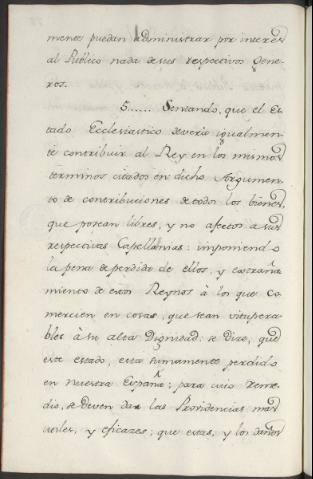 mente puedan administrar por interes
al Publico nada de sus respectivos Gene-
ros.
5...... Sentando, que el Es-
tado Ecclesiastico deveria igualmen-
te contribuir al Rey en los mismos
terminos citados en dicho Argumen-
to de contribuciones de todos los bienes,
que posean libres, y no afectos a sus
respectivas Capellanias: imponiendo
la pena de perdida de ellos, y estraña-
miento de estos Reynos à los que Co-
mercien en cosas, que sean vitupera-
bles à su alta Dignidad: se Dixo, que
este estado, esta sumamente perdido
en nuestra España; para cuio reme-
dio, se Deven dar las Providencias mas
utiles, y eficazes; que estas, y los daños